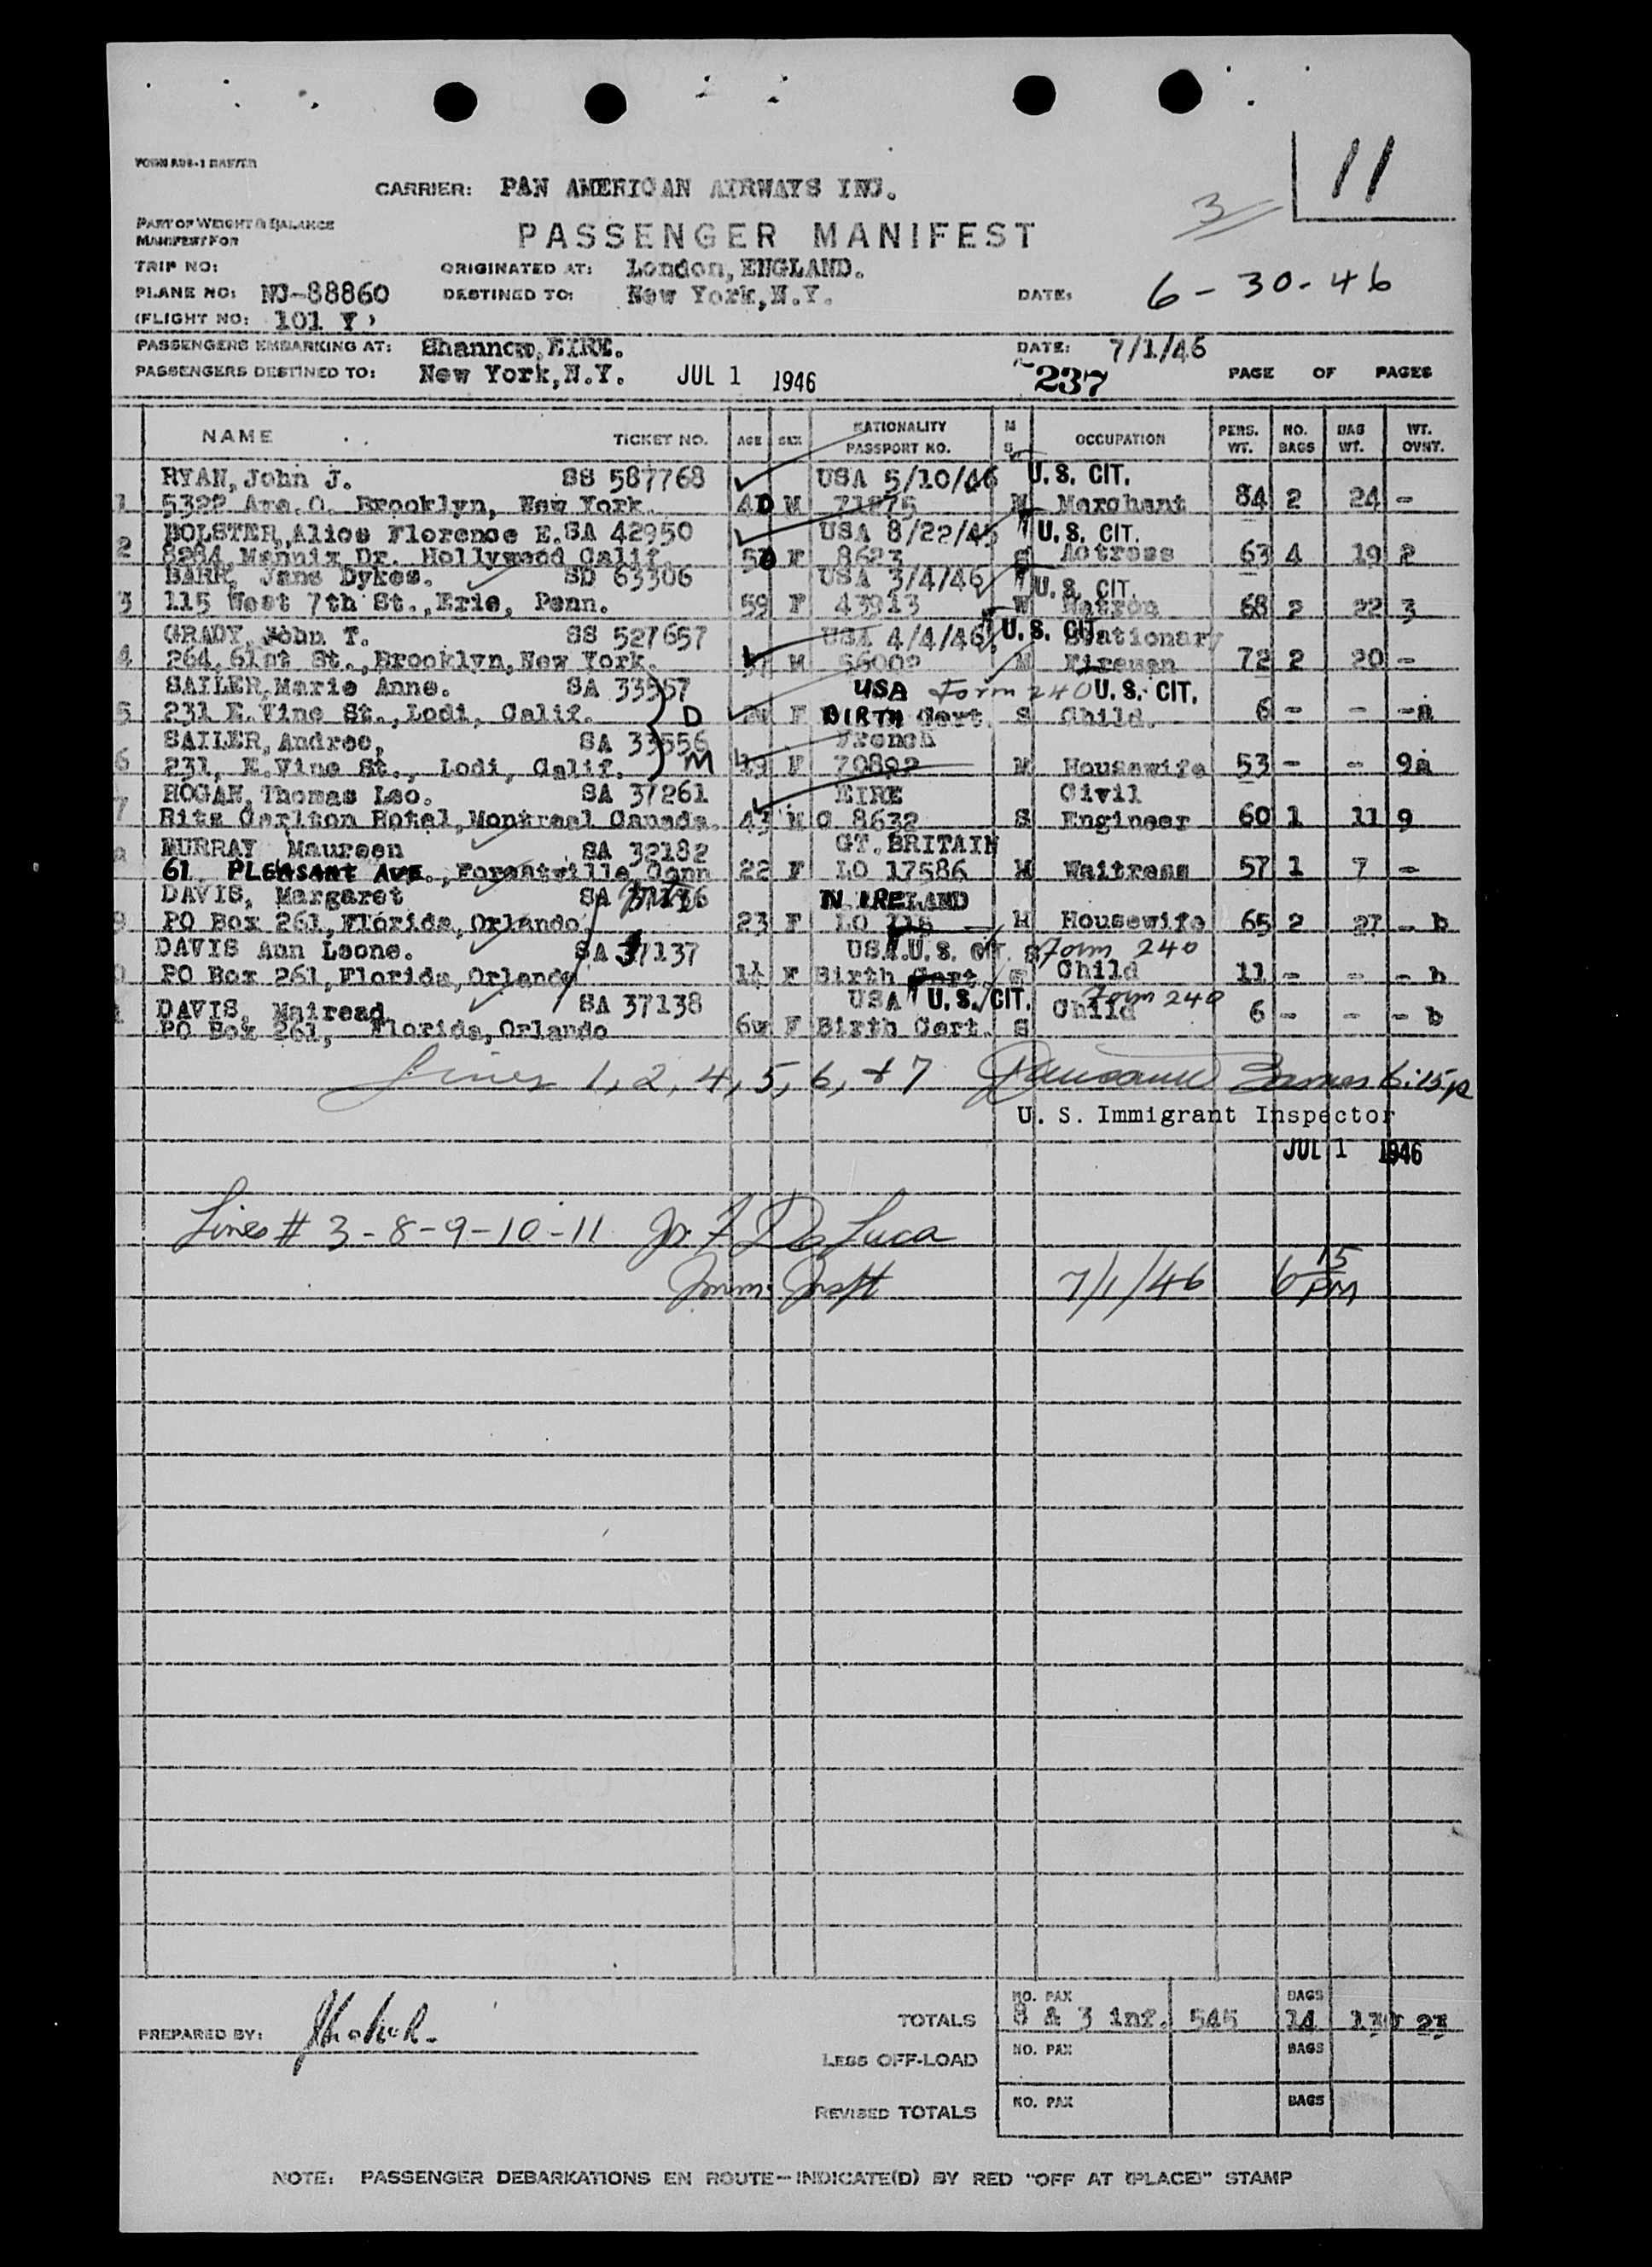 FORM ADS-1 MASTER
11
CARRIER: PAN AMERICAN AIRWAYS INC.
3
PART OF WEIGHT & BALANCE
MANIFEST FOR
PASSENGER MANIFEST
TRIP NO: ORIGINATED AT: London, ENGLAND.
PLANE NO: NC-88860 DESTINED TO: New York, N.Y. DATE: 6-30-46
(FLIGHT NO: 101 Y)
PASSENGERS EMBARKING AT: Shannon, EIRE. DATE: 7/1/46
PASSENGERS DESTINED TO: New York, N.Y. JUL 1 1946 237 PAGE OF PAGES
NAME TICKET NO. AGE SEX NATIONALITY PASSPORT NO. M S OCCUPATION PERS. WT. NO. BAGS BAG WT. WT. OVNT.
RYAN, John J. SS 587768 USA 5/10/46 U. S. CIT.
1 5322 Ave. O. Brooklyn, New York. M 71875 M Merchant 84 2 24 -
BOLSTER, Alice Florence E. SA 42950 USA 8/22/45 U. S. CIT.
2 8284, Mannix Dr. Hollywood Calif. F 8623 S Actress 63 4 19 2
BARR, Jane Dykes. SD 63306 USA 3/4/46 U. S. CIT.
3 115 West 7th St., Erie, Penn. 59 F 43913 W Matron 68 2 22 3
GRADY, John T. SS 527657 USA 4/4/46 U. S. CIT. Stationary
4 264, 61st St., Brooklyn, New York. M 56002 M Fireman 72 2 20 -
SAILER, Marie Anne. SA 33557 USA Form 240 U. S. CIT.
5 231 E. Vine St., Lodi, Calif. D F BIRTH Cert. S Child. 6 - - -a
SAILER, Andree, SA 33556 French
6 231, E. Vine St., Lodi, Calif. M 19 F 70892 M Housewife 53 - - 9a
HOGAN, Thomas Leo. SA 37261 EIRE Civil
7 Ritz Carlton Hotel, Montreal Canada. 43 M C 8632 S Engineer 60 1 11 9
MURRAY Maureen SA 32182 GT. BRITAIN
61 PLEASANT AVE., Forestville, Conn 22 F LO 17586 M Waitress 57 1 7 -
DAVIS, Margaret SA N IRELAND
9 PO Box 261, Florida, Orlando 23 F LO 118 M Housewife 65 2 27 - b
DAVIS Ann Leone. SA 37137 USA U. S. CIT. Form 240
PO Box 261, Florida, Orlando F Birth Cert S Child 11 - - - b
DAVIS, Mairead SA 37138 USA U. S. CIT. Form 240
PO Box 261, Florida, Orlando 6w F Birth Cert. S Child 6 - - - b
Lines 1, 2, 4, 5, 6, + 7 6:15p
U. S. Immigrant Inspector
JUL 1 1946
Lines # 3-8-9-10-11 De Luca
Imm. Inspt 7/1/46 6 15 PM
PREPARED BY:
TOTALS NO. PAX 8 & 3 inf. 545 BAGS 14
LESS OFF-LOAD NO. PAX BAGS
REVISED TOTALS NO. PAX BAGS
NOTE: PASSENGER DEBARKATIONS EN ROUTE—INDICATE(D) BY RED "OFF AT (PLACE)" STAMP